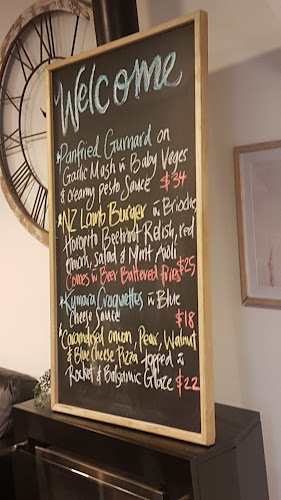 Welcome
*Panfried Gurnard on
Garlic Mash ñ Baby Veges
& creamy pesto Sauce $34
*NZ Lamb Burger ñ Brioche
Horopito Beetroot Relish, red
onion, salad & Mint Aioli
Comes ñ Beer Battered fries $25
*Kumara Croquettes ñ Blue
Cheese Sauce $18
*Caramelised onion, Pear, Walnut
& Blue Cheese Pizza topped ñ
Rocket & Balsamic Glaze $22